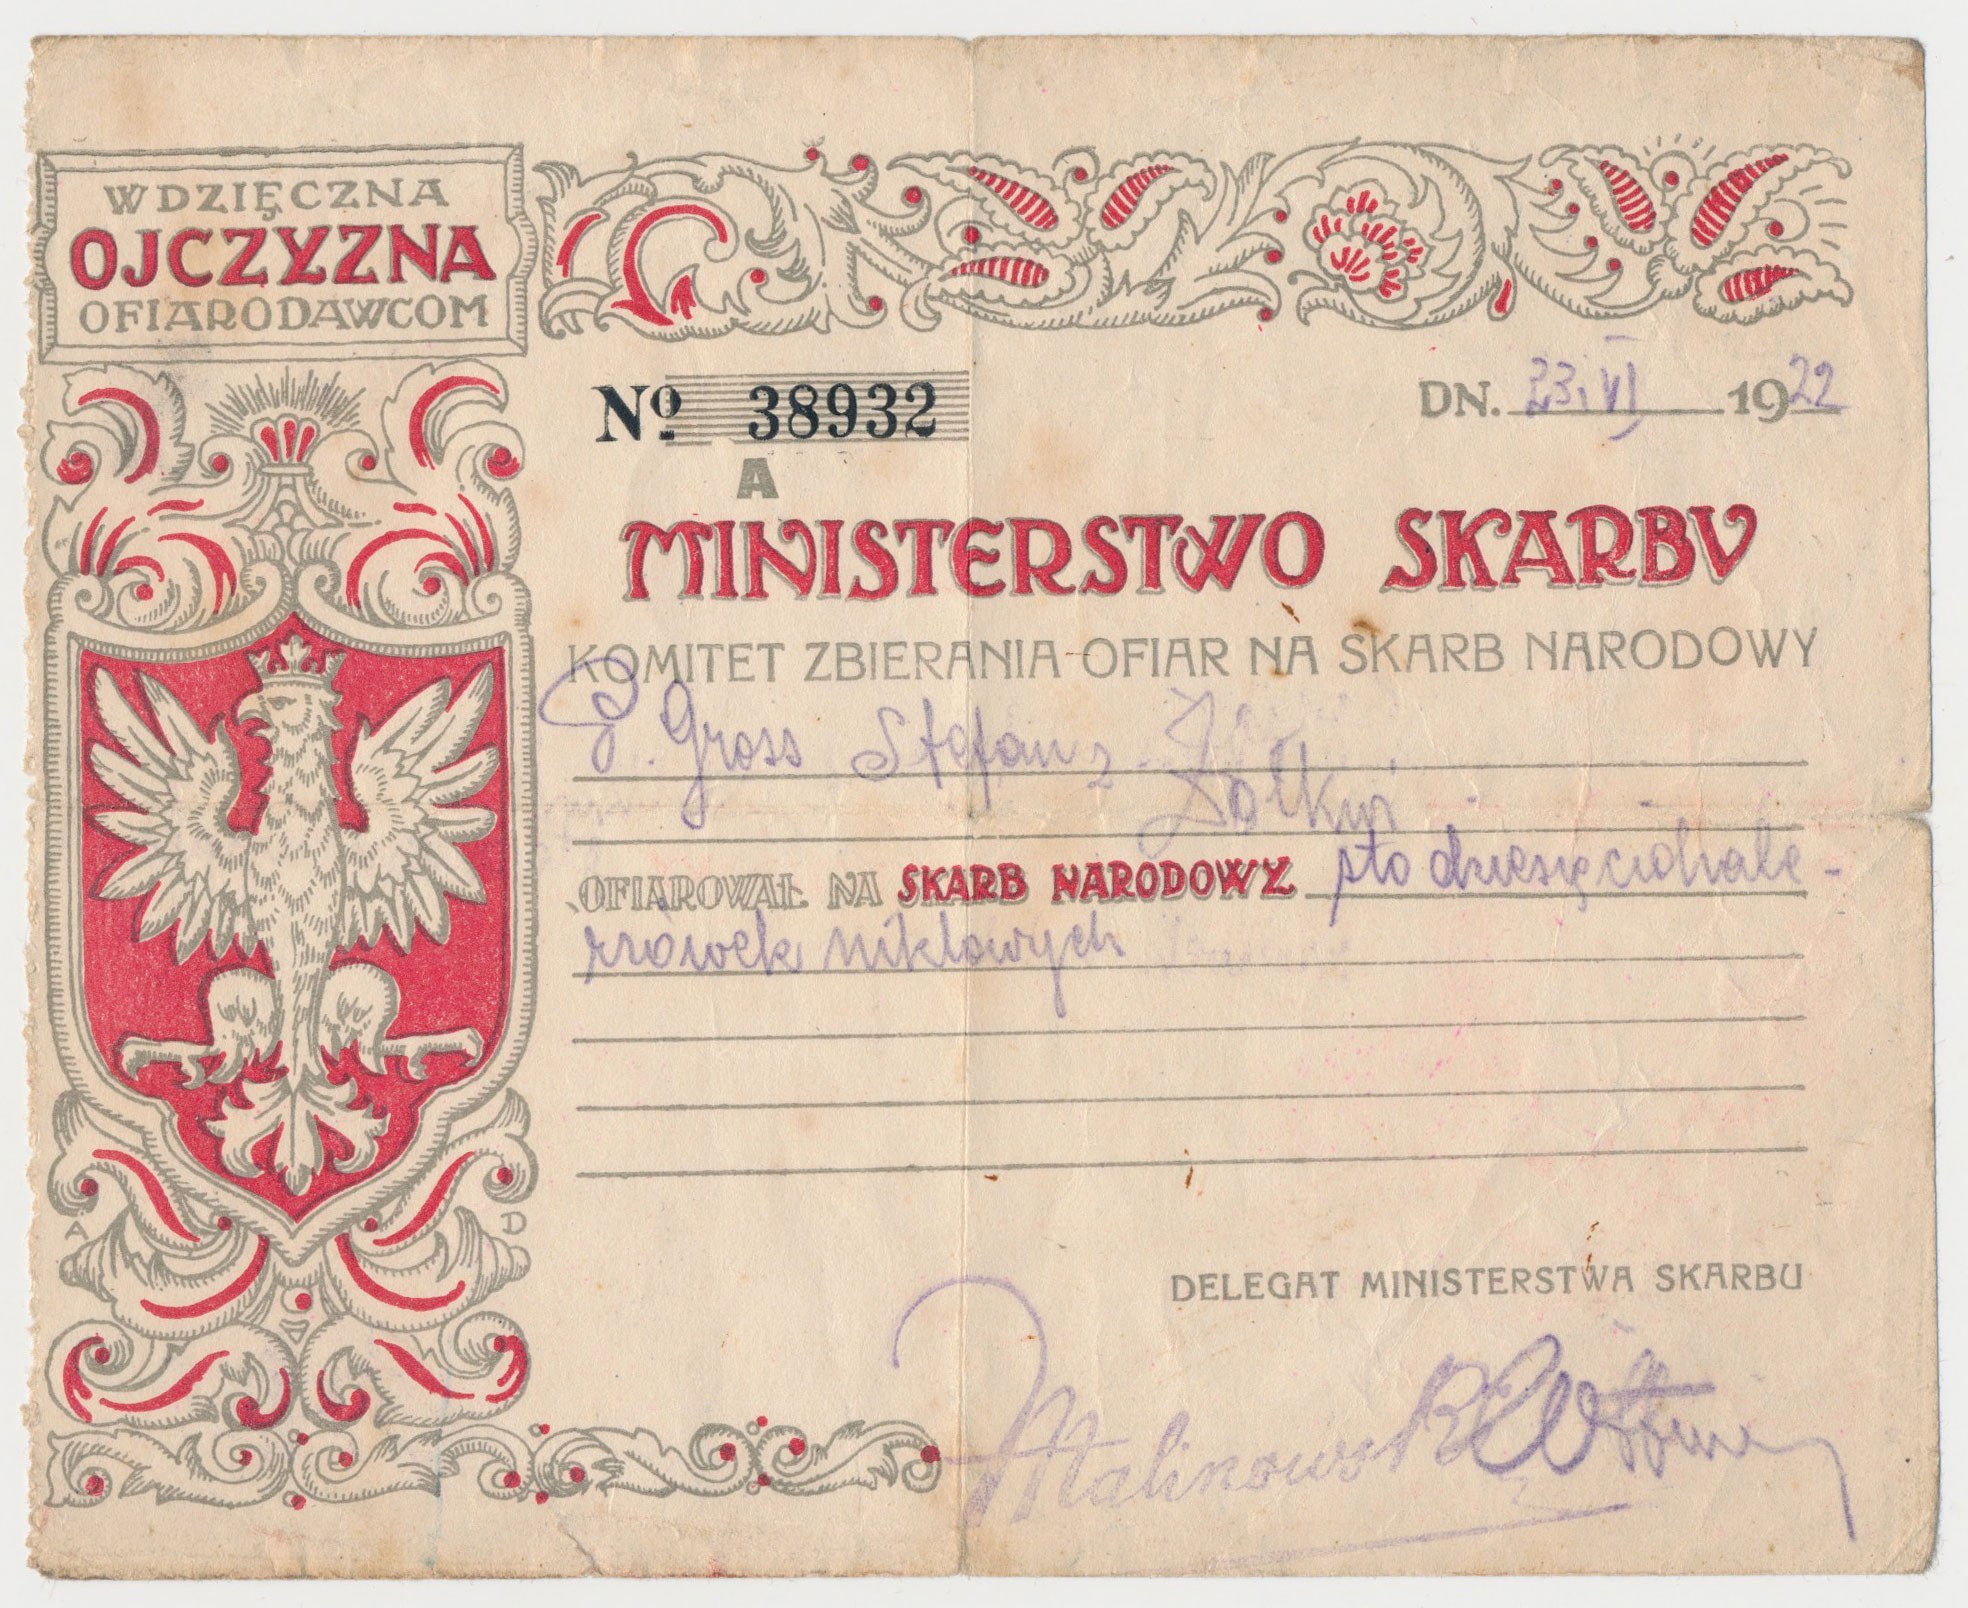 WDZIĘCZNA
OJCZYZNA
OFIARODAWCOM
No 38932
A
DN. 23. VI 1922
MINISTERSTWO SKARBU
KOMITET ZBIERANIA OFIAR NA SKARB NARODOWY
P. Gross Stefan z
Żółkwi
OFIAROWAŁ NA SKARB NARODOWY sto dziesięciohale-
rzówek niklowych
A D
DELEGAT MINISTERSTWA SKARBU
Malinowski